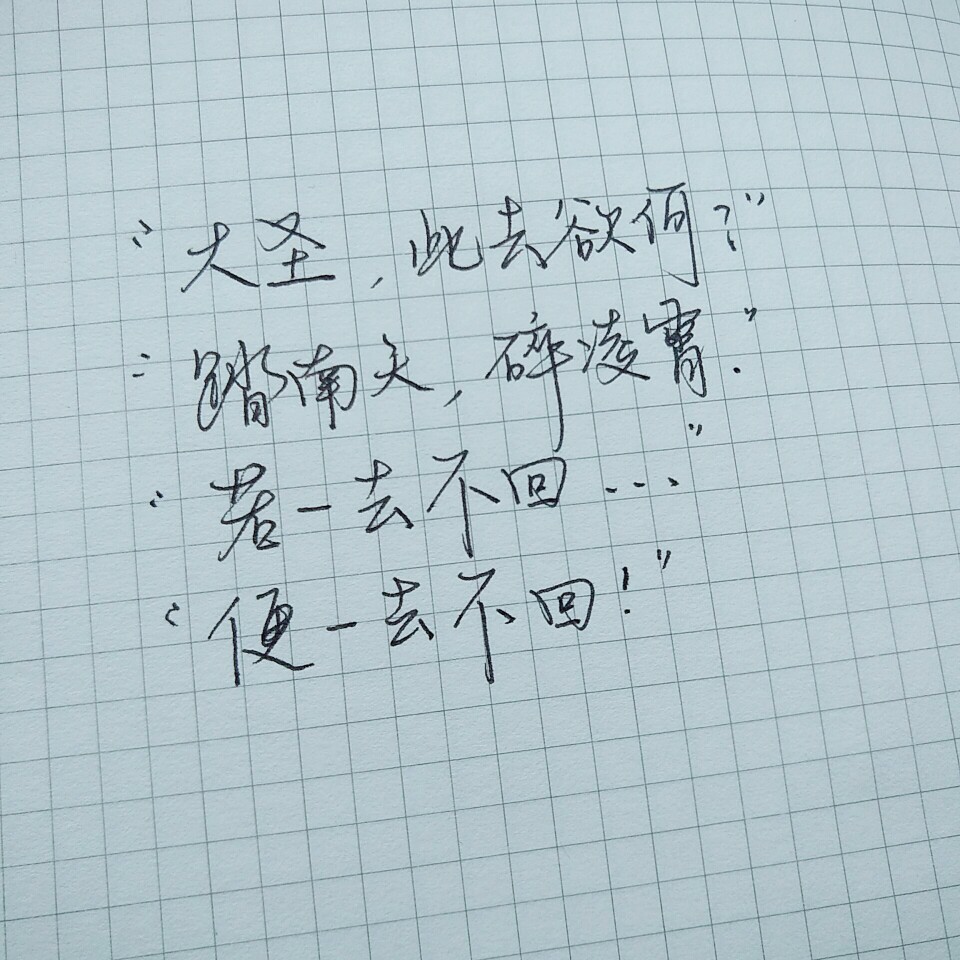 “大圣，此去欲何？”
“踏南天，碎凌霄．”
“若一去不回…”
“便一去不回！”